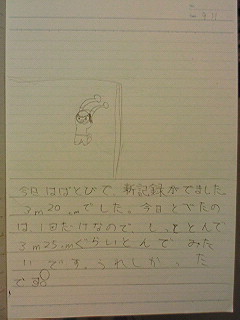 今日はばとびで、新記録がでました。
3m20cmでした。今日とべたの
は、1回だけなので、もっととんで
3m25cmぐらいとんでみた
いです。うれしかった
です。